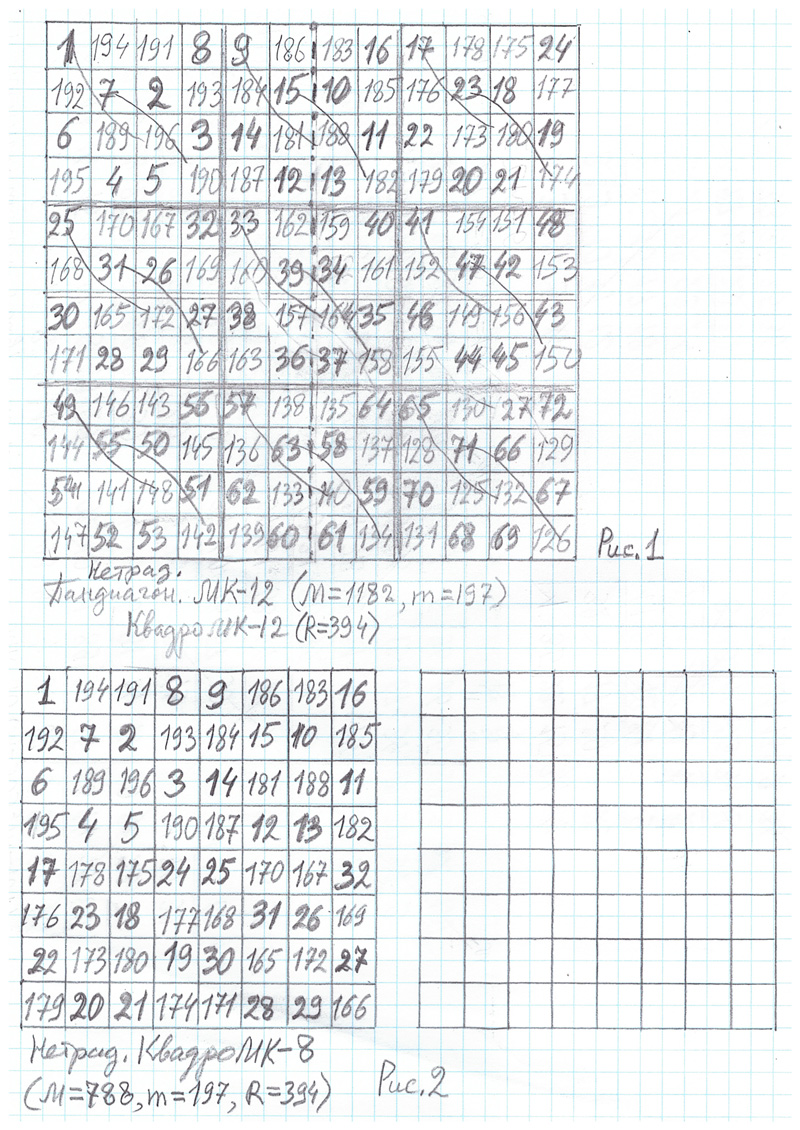 1 194 191 8 9 186 183 16 17 178 175 24
192 7 2 193 184 15 10 185 176 23 18 177
6 189 196 3 14 181 188 11 22 173 180 19
195 4 5 190 187 12 13 182 179 20 21 174
25 170 167 32 33 162 159 40 41 154 151 48
168 31 26 169 160 39 34 161 152 47 42 153
30 165 172 27 38 157 164 35 46 149 156 43
171 28 29 166 163 36 37 158 155 44 45 150
49 146 143 56 57 138 135 64 65 130 127 72
144 55 50 145 136 63 58 137 128 71 66 129
54 141 148 51 62 133 140 59 70 125 132 67
147 52 53 142 139 60 61 134 131 68 69 126
Рис.1
Нетрад.
Пандиагон. МК-12 (М=1182, m=197)
КвадроМК-12 (R=394)
1 194 191 8 9 186 183 16
192 7 2 193 184 15 10 185
6 189 196 3 14 181 188 11
195 4 5 190 187 12 13 182
17 178 175 24 25 170 167 32
176 23 18 177 168 31 26 169
22 173 180 19 30 165 172 27
179 20 21 174 171 28 29 166
Нетрад. КвадроМК-8
(М=788, m=197, R=394)
Рис.2